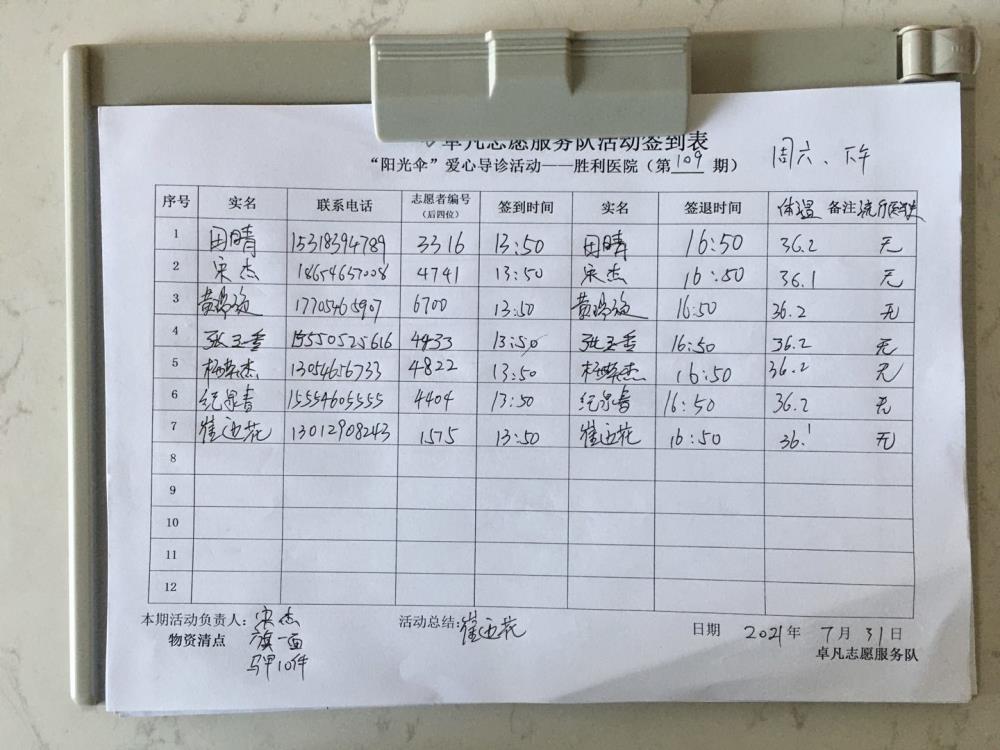 卓凡志愿服务队活动签到表
“阳光伞”爱心导诊活动——胜利医院（第109期） 周六、下午
序号 实名 联系电话 志愿者编号（后四位） 签到时间 实名 签退时间 体温 备注 流行病史
1 田晴 15318394789 3316 13:50 田晴 16:50 36.2 无
2 宋杰 18654657008 4741 13:50 宋杰 16:50 36.1 无
3 黄 17705465907 6700 13:50 黄 16:50 36.2 无
4 张玉香 15550525616 4933 13:50 张玉香 16:50 36.2 无
5 杨荣杰 13054656733 4822 13:50 杨荣杰 16:50 36.2 无
6 纪泉香 15554605555 4404 13:50 纪泉香 16:50 36.2 无
7 崔迎花 13012908243 1575 13:50 崔迎花 16:50 36.1 无
8
9
10
11
12
本期活动负责人：宋杰 活动总结：崔迎花 日期 2021年7月31日
物资清点 旗一面 卓凡志愿服务队
马甲10件